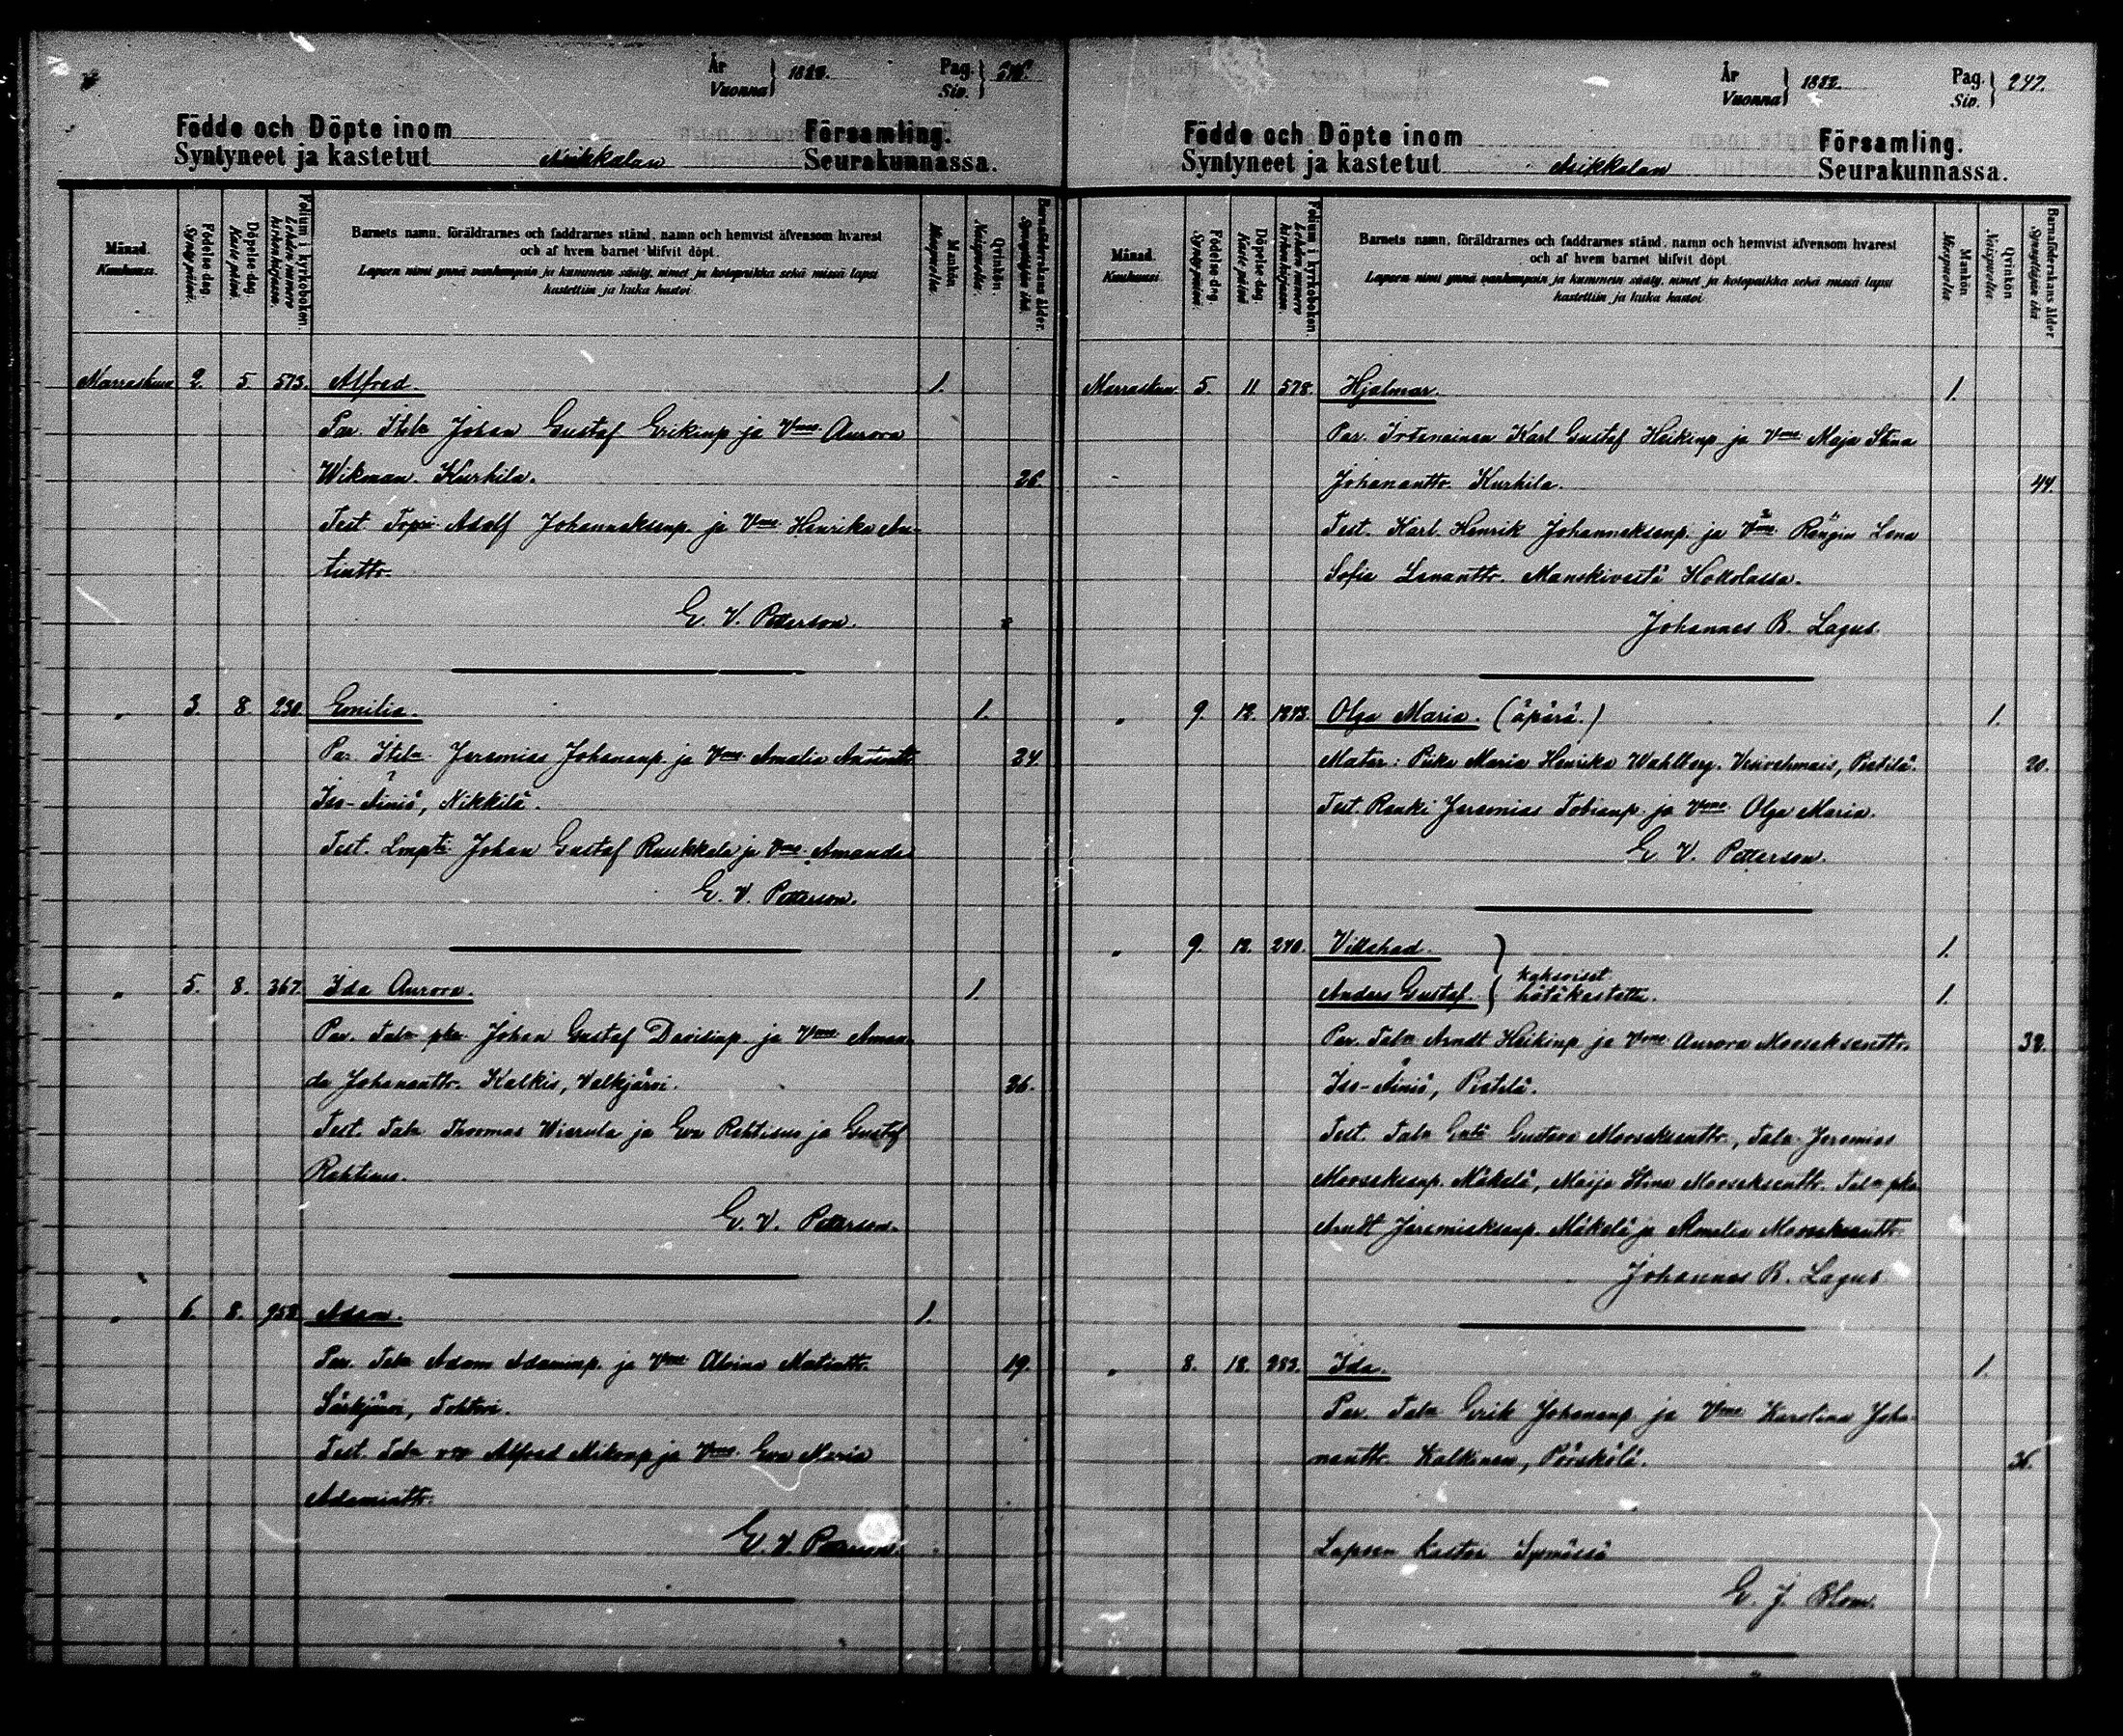 År
Vuonna } 1882. Pag.
Siv. } 246.
Födde och Döpte inom Församling.
Syntyneet ja kastetut Asikkalan Seurakunnassa.
Månad. Kuukausi.
Födelse-dag. Synty päivä.
Döpelse-dag. Kaste päivä.
Folium i kyrkoboken. Lehden numero kirkonkirjassa.
Barnets namn, föräldrarnes och faddrarnes stånd, namn och hemvist äfvensom hvarest
och af hvem barnet blifvit döpt.
Lapsen nimi ynnä vanhempain ja kummein sääty, nimet ja kotopaikka sekä missä lapsi
kastettiin ja kuka kastoi.
Mankön. Miespuolia.
Qvinkön. Naispuolia.
Barnaföderskans ålder. Synnyttäjän ikä.
Marraskuu 2. 5. 573. Alfred. 1.
Par. Itsln Johan Gustaf Erikinp. ja Vmo Aurora
Wikman. Kurhila. 26.
Test. Adolf Johanneksenp. ja Vmo Henrika An-
tintr.
E. V. Petterson.
" 3. 8. 230. Emilia. 1.
Par. Itsln Jeremias Johananp. ja Vmo Amalia Antintr.
Iso-Äiniö, Nikkilä. 34.
Test. Lmpti Johan Gustaf Ruukkala ja Vmo Amanda
E. V. Petterson.
" 5. 8. 367. Ida Aurora. 1.
Par. Taln pka Johan Gustaf Davidinp. ja Vmo Aman-
da Johanantr. Kalkis, Valkjärvi. 26.
Test. Taln Thoomas Wierula ja Eva Rehtinus ja Gustaf
Rahtinus.
E. V. Petterson.
" 6. 8. 958. Adam. 1.
Par. Taln Adam Adaminp. ja Vmo Alvina Matintr. 19.
Särkjärvi,
Test. Taln Alfred Mikonp. ja Vmo Eva Maria
Adamintr.
E. V. Petterson.
År
Vuonna } 1882. Pag.
Siv. } 247.
Födde och Döpte inom Församling.
Syntyneet ja kastetut Asikkalan Seurakunnassa.
Månad. Kuukausi.
Födelse-dag. Synty päivä.
Döpelse-dag. Kaste päivä
Folium i kyrkoboken. Lehden numero kirkonkirjassa.
Barnets namn, föräldrarnes och faddrarnes stånd, namn och hemvist äfvensom hvarest
och af hvem barnet blifvit döpt.
Lapsen nimi ynnä vanhempain ja kummein sääty, nimet ja kotopaikka sekä missä lapsi
kastettiin ja kuka kastoi.
Mankön Miespuolia
Qvinkön Naispuolia
Barnaföderskans ålder Synnyttäjän ikä
Marraskuu 5. 11. 578. Hjalmar. 1.
Par. Irtonainen Karl Gustaf Heikinp. ja Vmo Maja Stina
Johanantr. Kurhila. 44.
Test. Karl Henrik Johanneksenp. ja Vmo Lena
Sofia Manskivestä Hollolassa.
Johannes B. Lagus.
" 9. 12. 1243. Olga Maria. (äpärä.) 1.
Mater: Piika Maria Henrika Wahlberg. Vesivehmais, Pietilä. 20.
Test. Renki Jeremias Tobianp. ja Vmo Olga Maria.
E. V. Petterson.
" 9. 12. 240. Villehad. } 1.
Anders Gustaf. { kaksoiset hätäkastettu. 1.
Par. Taln Arndt Heikinp. ja Vmo Aurora Mooseksentr. 32.
Iso-Äiniö, Pietilä.
Test. Taln Gustava Mooseksentr., Taln Jeremias
Mooseksenp. Mäkelä, Maija Stina Mooseksentr. Taln pka
Arndt Jeremiaksenp. Mäkelä ja Amalia Mooseksentr.
Johannes B. Lagus
" 8. 18. 283. Ida. 1.
Par. Taln Erik Johananp. ja Vmo Karolina Joha-
nantr. Kalkinen, Pörskölä. 36.
Lapsen kastoi Sysmässä
E. J. Blom.